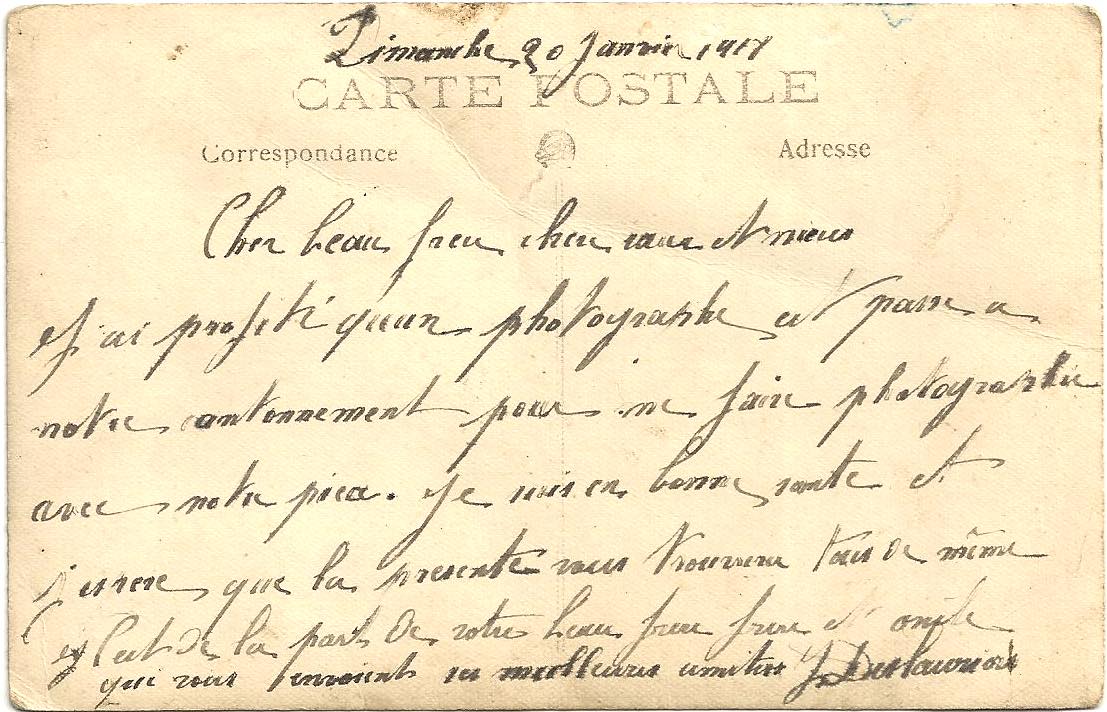 Dimanche 20 Janvier 1918
CARTE POSTALE
Correspondance
Adresse
Cher beau frere chere et nieces
J'ai profité qu'un photographe et passe a
notre cantonnement pour me faire photographie
avec notre piece. Je suis en bonne sante et
j'espere que la presente vous trouvera tous de même
C'est de la part de votre beau frere frere et oncle
qui vous envoient ses meilleures amities J.